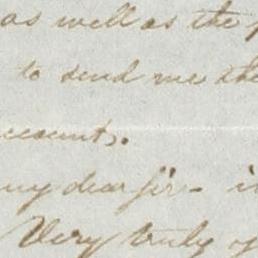 as well as the
to send me the
ccounts.
my dear sir - i
Very truly y